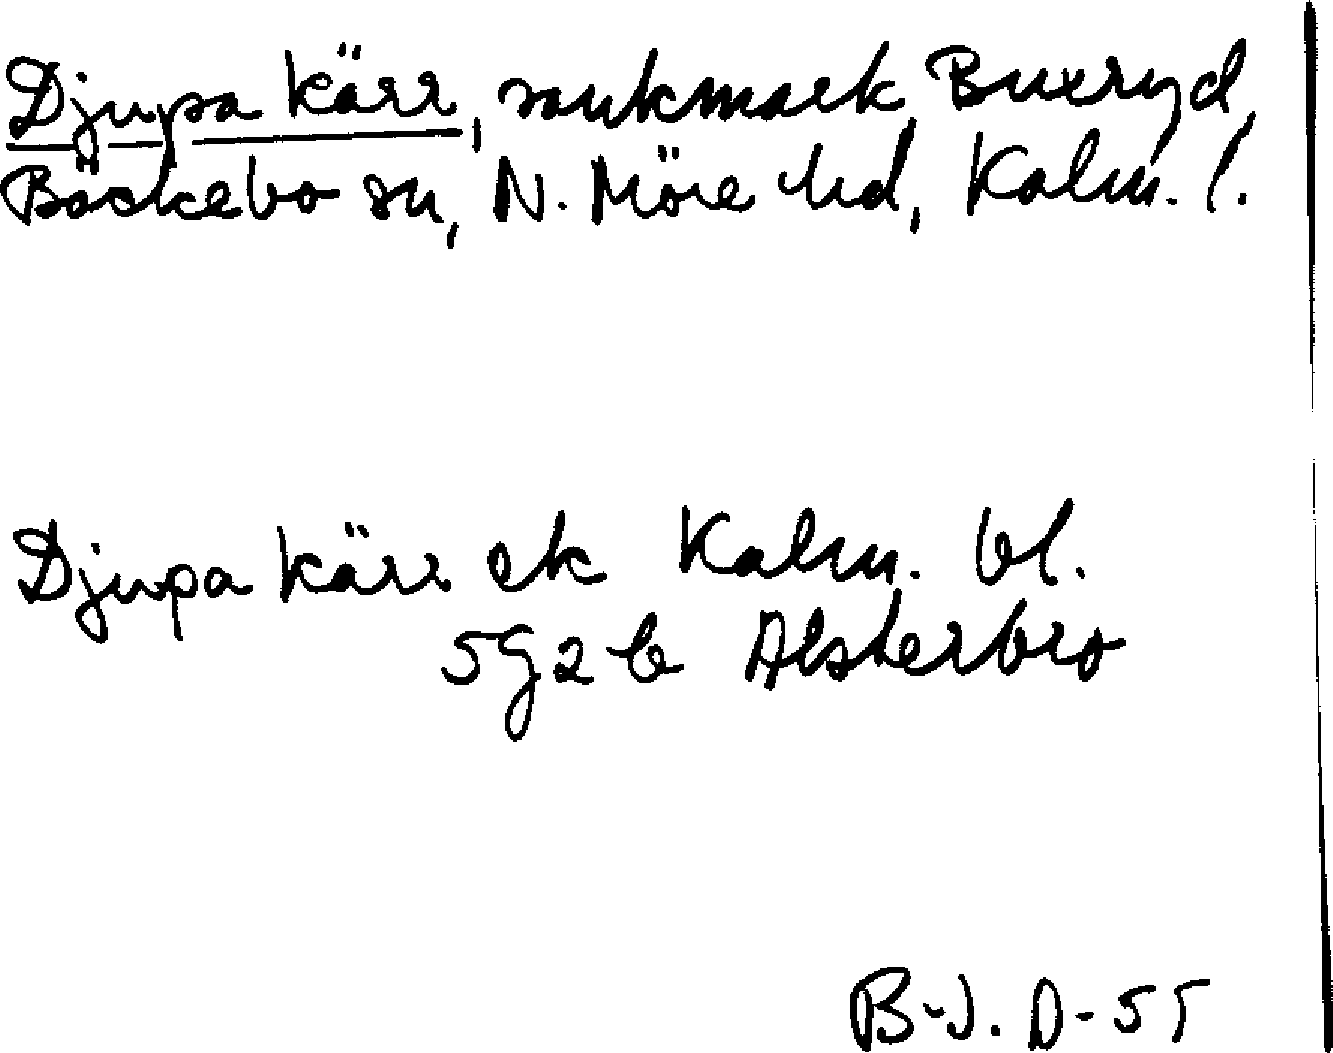 Djupa kärr, sankmark, Buxeryd,
Bäckebo sn, N. Möre hd, Kalm. l.
Djupa kärr ek Kalm. bl.
5G2b Alsterbro
B-J. D-55